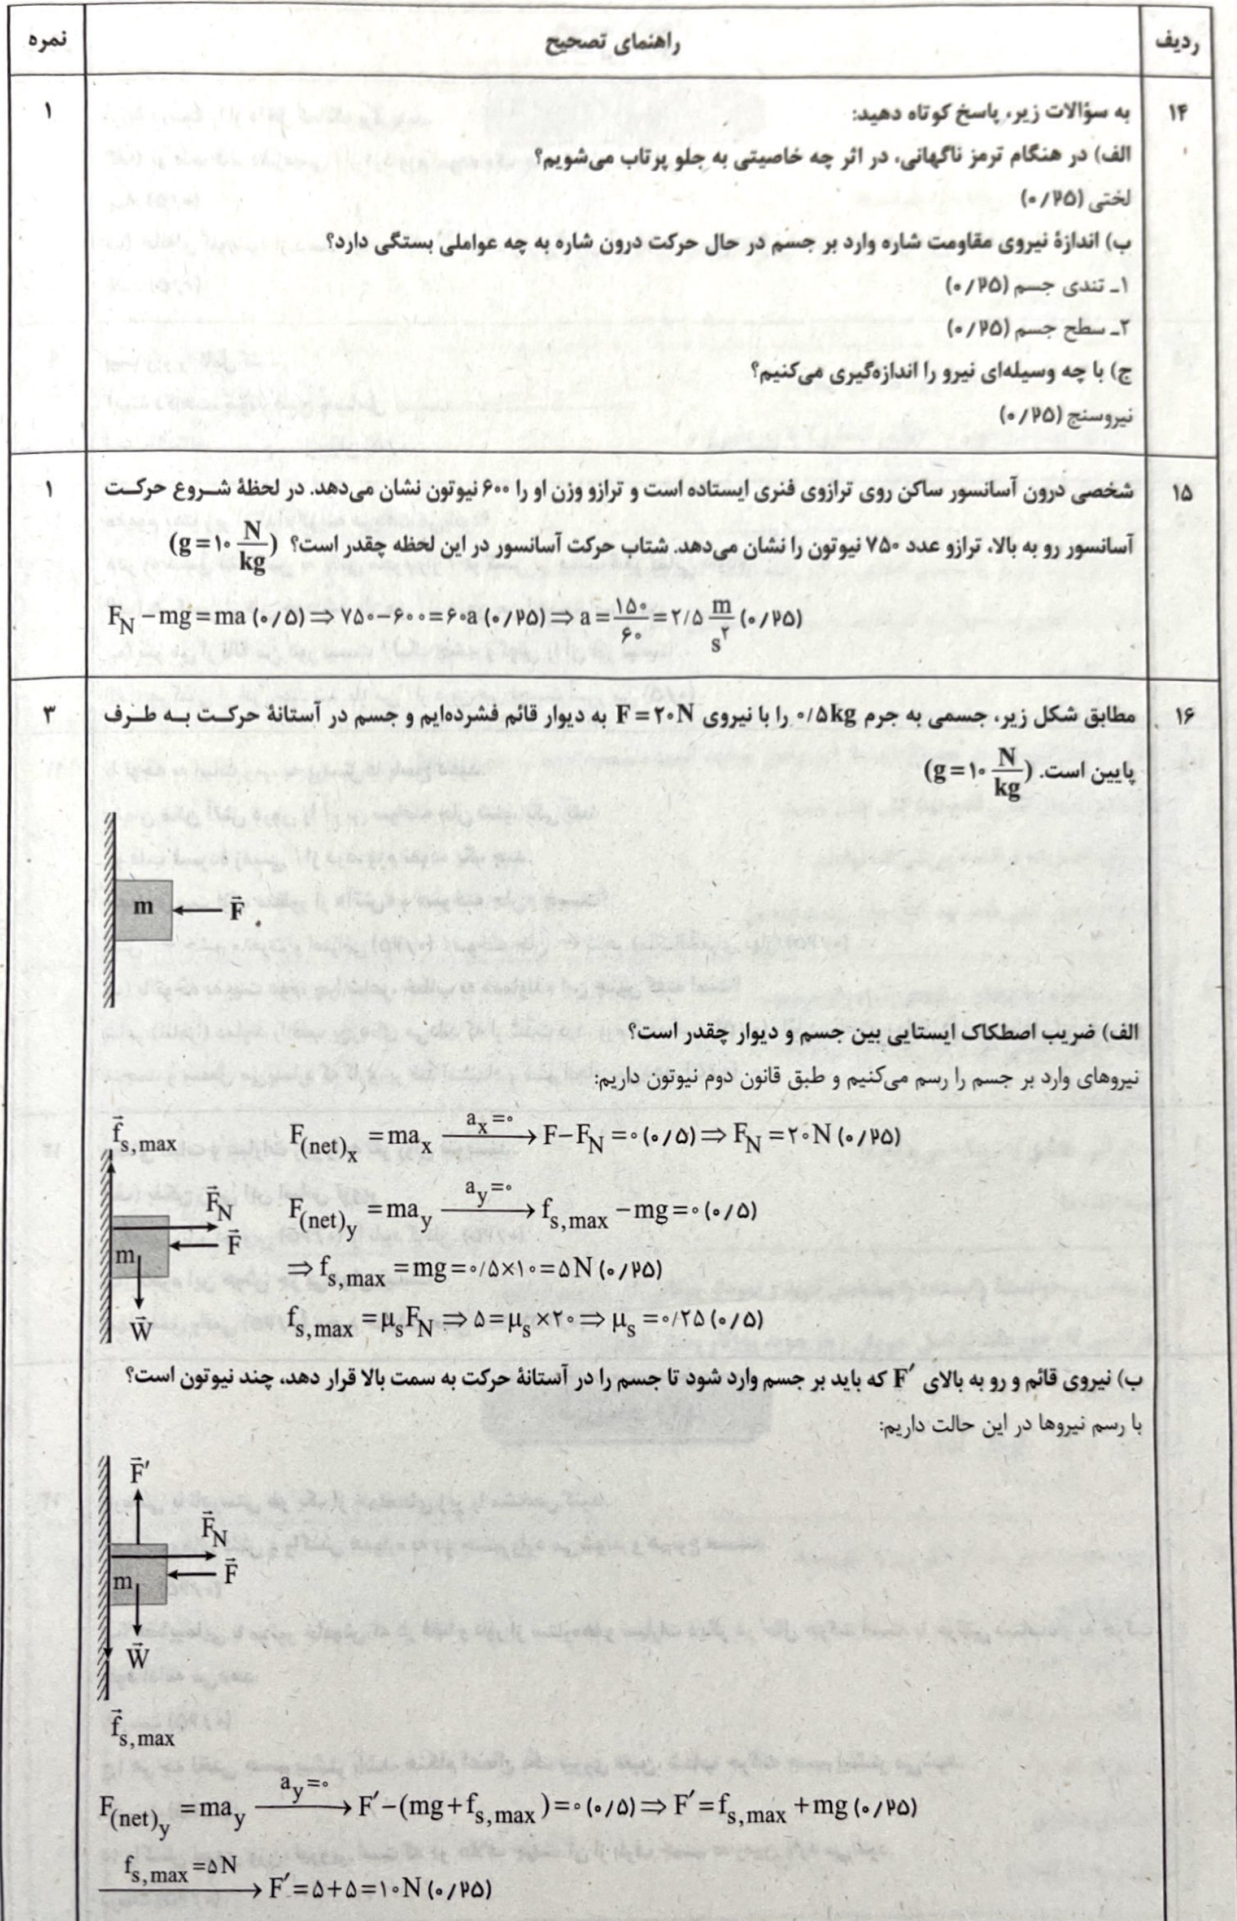 ردیف راهنمای تصحیح نمره
۱۴ به سؤالات زیر، پاسخ کوتاه دهید: ۱
الف) در هنگام ترمز ناگهانی، در اثر چه خاصیتی به جلو پرتاب می‌شویم؟
لختی (۰/۲۵)
ب) اندازهٔ نیروی مقاومت شاره وارد بر جسم در حال حرکت درون شاره به چه عواملی بستگی دارد؟
۱ـ تندی جسم (۰/۲۵)
۲ـ سطح جسم (۰/۲۵)
ج) با چه وسیله‌ای نیرو را اندازه‌گیری می‌کنیم؟
نیروسنج (۰/۲۵)
۱۵ شخصی درون آسانسور ساکن روی ترازوی فنری ایستاده است و ترازو وزن او را ۶۰۰ نیوتون نشان می‌دهد. در لحظهٔ شروع حرکت ۱
آسانسور رو به بالا، ترازو عدد ۷۵۰ نیوتون را نشان می‌دهد. شتاب حرکت آسانسور در این لحظه چقدر است؟ (g=۱۰ N/kg)
F_N − mg = ma (۰/۵) ⇒ ۷۵۰−۶۰۰=۶۰a (۰/۲۵) ⇒ a = ۱۵۰/۶۰ = ۲/۵ m/s^۲ (۰/۲۵)
۱۶ مطابق شکل زیر، جسمی به جرم ۰/۵kg را با نیروی F=۲۰N به دیوار قائم فشرده‌ایم و جسم در آستانهٔ حرکت به طرف ۳
پایین است. (g=۱۰ N/kg)
m F
الف) ضریب اصطکاک ایستایی بین جسم و دیوار چقدر است؟
نیروهای وارد بر جسم را رسم می‌کنیم و طبق قانون دوم نیوتون داریم:
f_s,max
F_(net)x = ma_x a_x=۰ → F−F_N=۰ (۰/۵) ⇒ F_N=۲۰N (۰/۲۵)
F_N
F_(net)y = ma_y a_y=۰ → f_s,max −mg=۰ (۰/۵)
F
m
⇒ f_s,max = mg=۰/۵×۱۰=۵N (۰/۲۵)
W
f_s,max = μ_s F_N ⇒ ۵=μ_s×۲۰ ⇒ μ_s=۰/۲۵ (۰/۵)
ب) نیروی قائم و رو به بالای F′ که باید بر جسم وارد شود تا جسم را در آستانهٔ حرکت به سمت بالا قرار دهد، چند نیوتون است؟
با رسم نیروها در این حالت داریم:
F′
F_N
F
m
W
f_s,max
F_(net)y = ma_y a_y=۰ → F′−(mg+f_s,max)=۰ (۰/۵) ⇒ F′=f_s,max +mg (۰/۲۵)
f_s,max=۵N → F′=۵+۵=۱۰N (۰/۲۵)